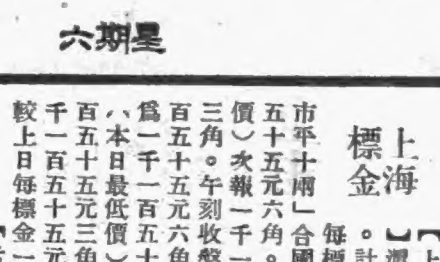 星期六
上海
標金
【上
】
。計
每標
市平十兩」合國
五十五元六角。
價）次報一千一
三角。午刻收盤一
百五十五元六角
爲一千一百五十
、本日最低價）
百五十五元三角
千一百五十五元
較上日每標金一